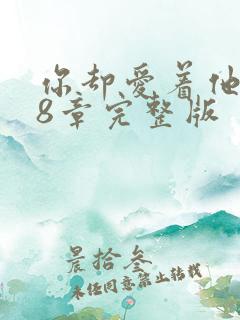 你却爱着他
8章完整版
晨拾叁
未经同意禁止转载